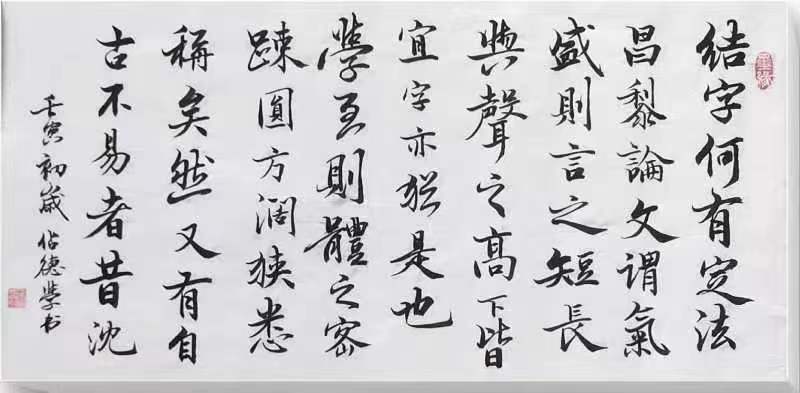 結字何有定法
昌黎論文謂氣
盛則言之短長
與聲之高下皆
宜字亦猶是也
學至則體之密
踈圓方濶狹悉
稱矣然又有自
古不易者昔沈
壬寅初歲 德學书